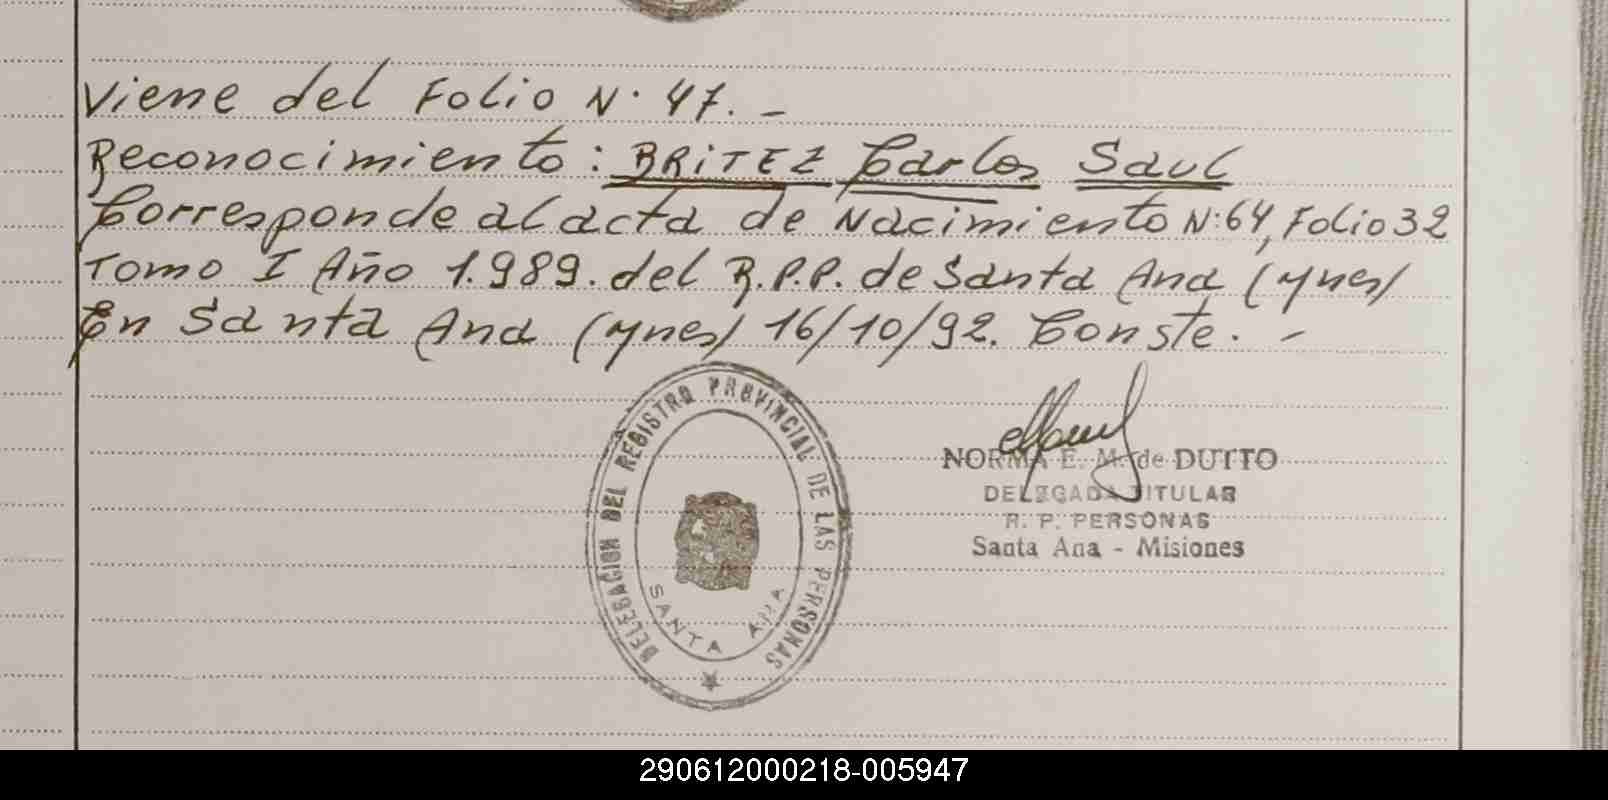 Viene del Folio N. 47. -
Reconocimiento: BRITEZ Carlos Saul
Corresponde al acta de Nacimiento N:64, Folio 32
Tomo I Año 1.989. del R.P.P. de Santa Ana (Mnes)
En Santa Ana (Mnes) 16/10/92. Conste. -
DELEGACION DEL REGISTRO PROVINCIAL DE LAS PERSONAS
SANTA ANA
NORMA E. M. de DUTTO
DELEGADA TITULAR
R. P. PERSONAS
Santa Ana - Misiones
290612000218-005947